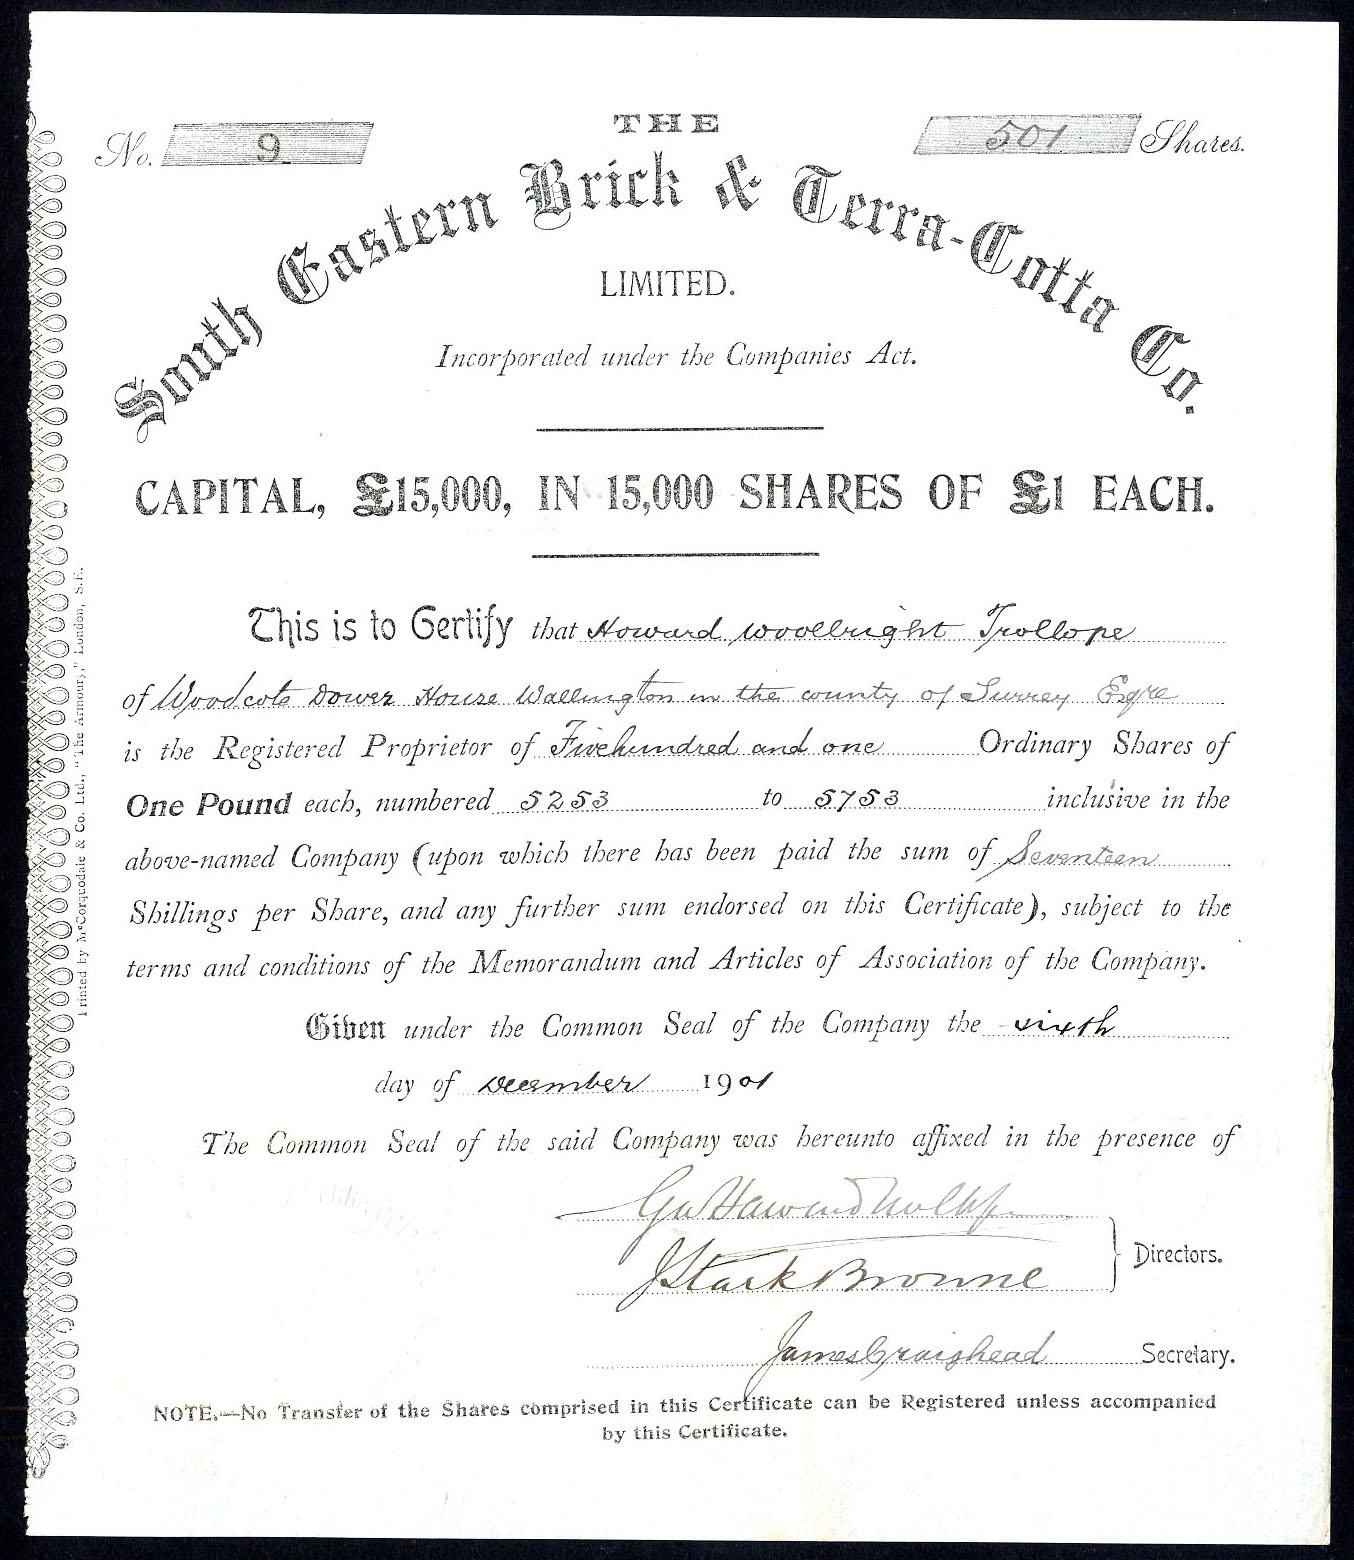 No. 9
THE
501 Shares.
South Eastern Brick & Terra-Cotta Co.
LIMITED.
Incorporated under the Companies Act.
CAPITAL, £15,000, IN 15,000 SHARES OF £1 EACH.
This is to Certify that Howard Woollright Trollope
of Woodcote Dower House Wallington in the county of Surrey Esqre
is the Registered Proprietor of Fivehundred and one Ordinary Shares of
One Pound each, numbered 5253 to 5753 inclusive in the
above-named Company (upon which there has been paid the sum of Seventeen
Shillings per Share, and any further sum endorsed on this Certificate), subject to the
terms and conditions of the Memorandum and Articles of Association of the Company.
Given under the Common Seal of the Company the sixth
day of December 1901
The Common Seal of the said Company was hereunto affixed in the presence of
Geo Haward Trollope
J Stark Browne
Directors.
James Craighead Secretary.
NOTE.—No Transfer of the Shares comprised in this Certificate can be Registered unless accompanied
by this Certificate.
Printed by McCorquodale & Co. Ltd., "The Armoury," London, S.E.